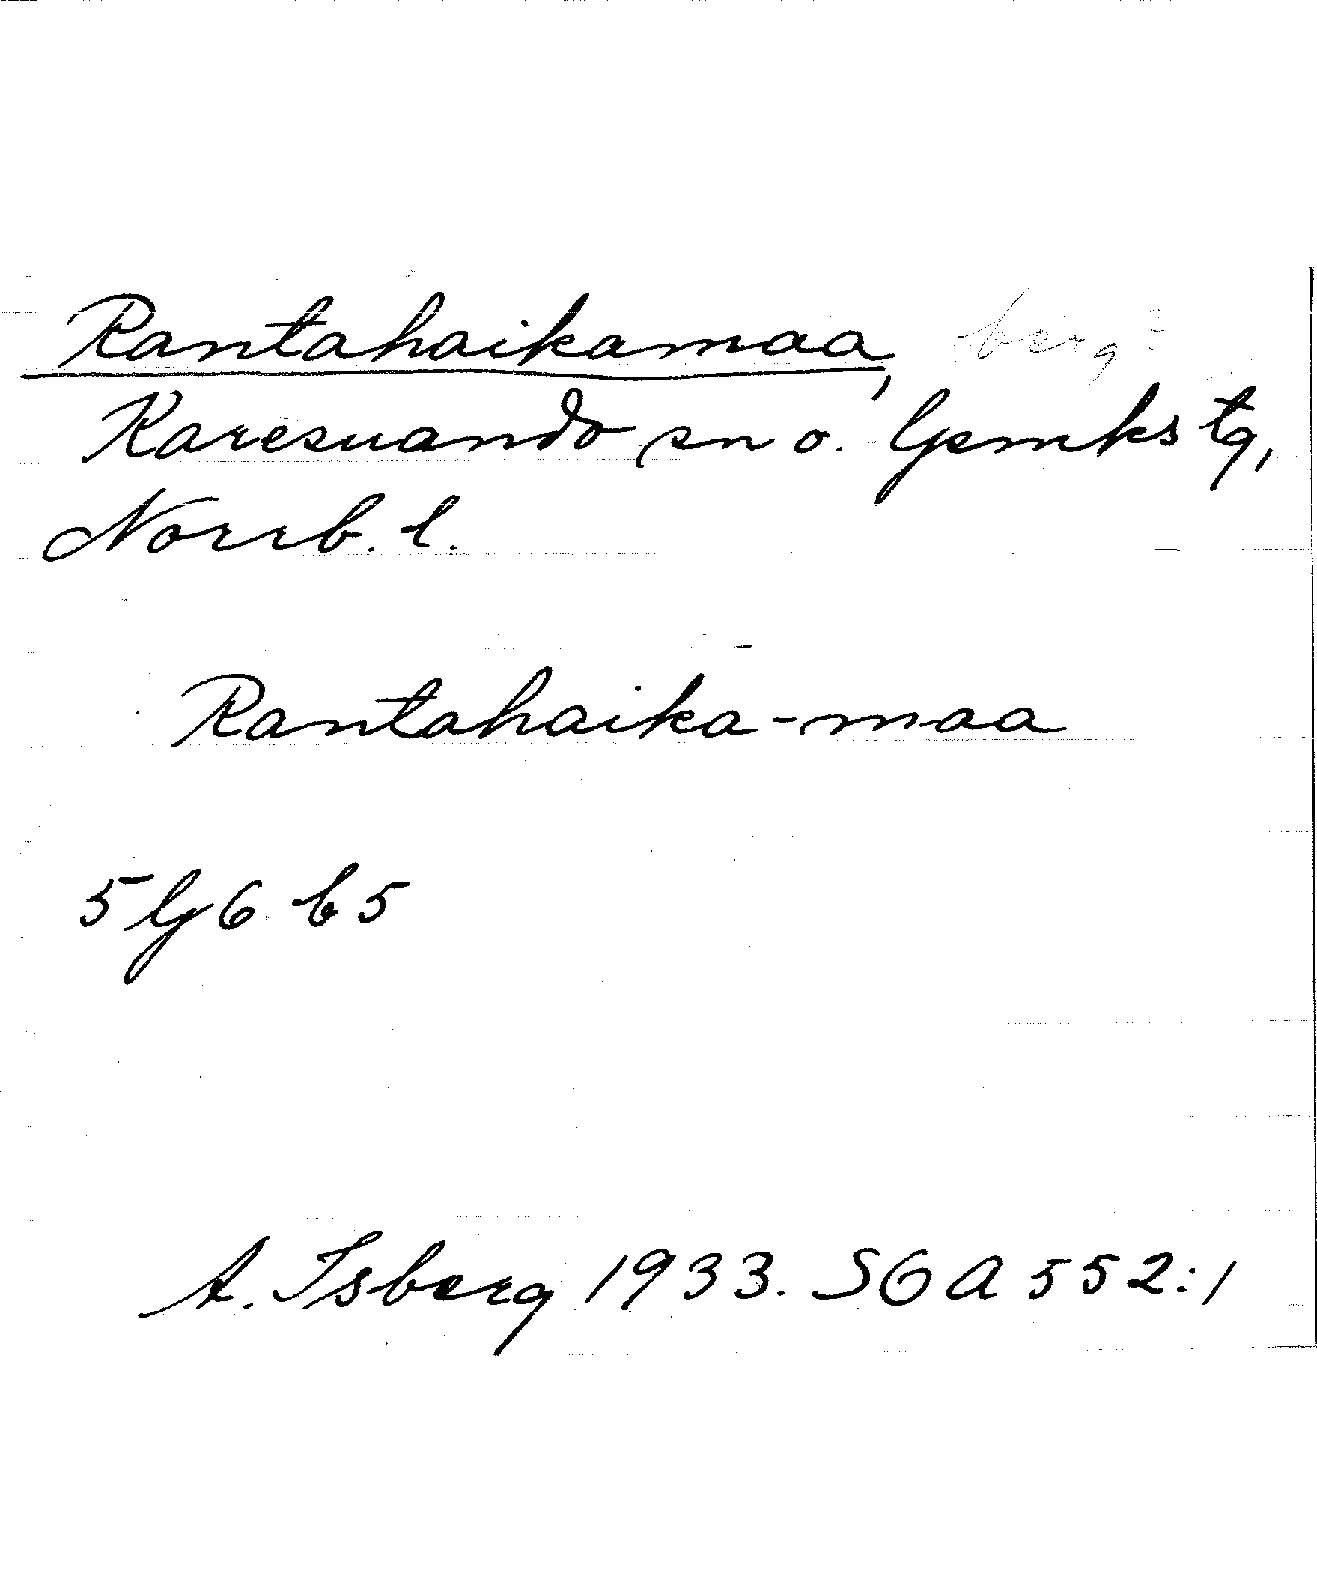 Rantahaikamaa, berg?
Karesuando sn o. lpmks tg,
Norrb. l.
Rantahaika-maa
5 lj 6 b 5
A. Isberg 1933. SOA 552:1